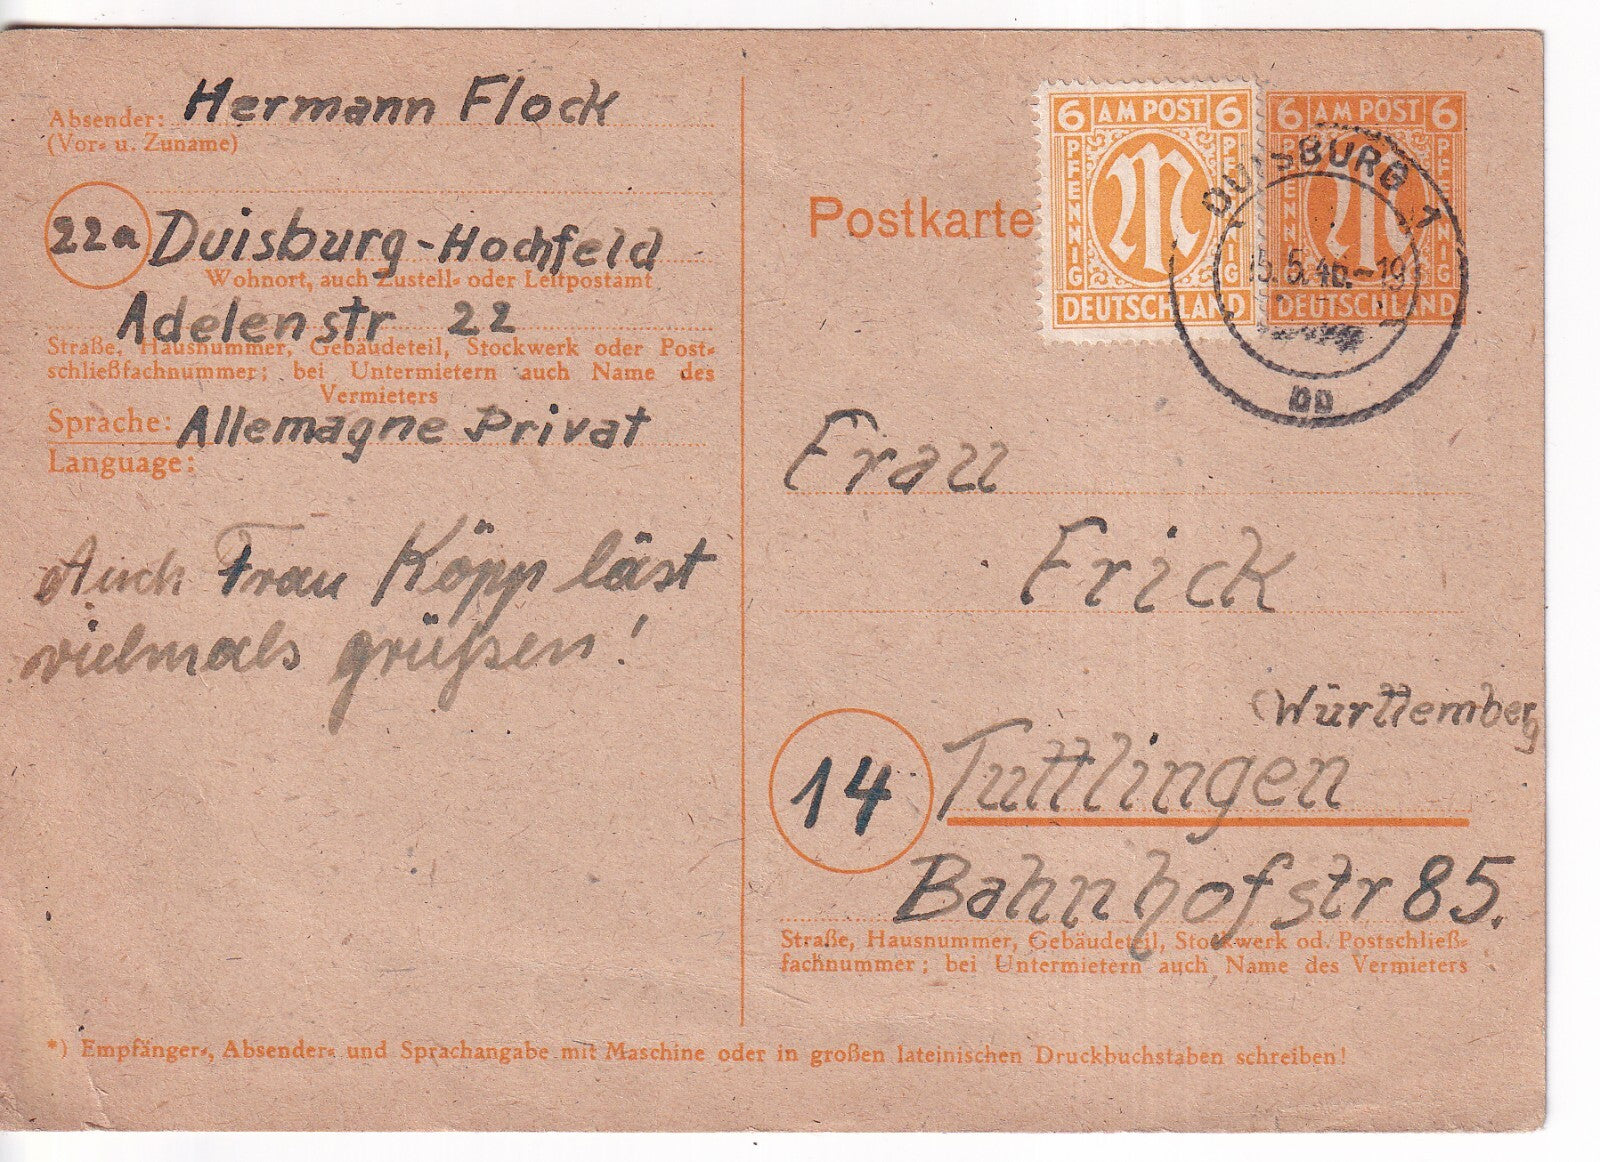 Absender: Hermann Flock
(Vor- u. Zuname)
22a Duisburg-Hochfeld
Wohnort, auch Zustell- oder Leitpostamt
Adelenstr 22
Straße, Hausnummer, Gebäudeteil, Stockwerk oder Post-
schließfachnummer; bei Untermietern auch Name des
Vermieters
Sprache: Allemagne Privat
Language:
Auch Frau Köpp läst
vielmals grüßen!
Postkarte
6 AM POST 6
PFENNIG
PFENNIG
DEUTSCHLAND
6 AM POST 6
PFENNIG
PFENNIG
DEUTSCHLAND
DUISBURG 1
15.5.46.-19
Frau
Frick
(Württemberg
14 Tuttlingen
Bahnhofstr 85.
Straße, Hausnummer, Gebäudeteil, Stockwerk od. Postschließ-
fachnummer; bei Untermietern auch Name des Vermieters
*) Empfänger-, Absender- und Sprachangabe mit Maschine oder in großen lateinischen Druckbuchstaben schreiben!